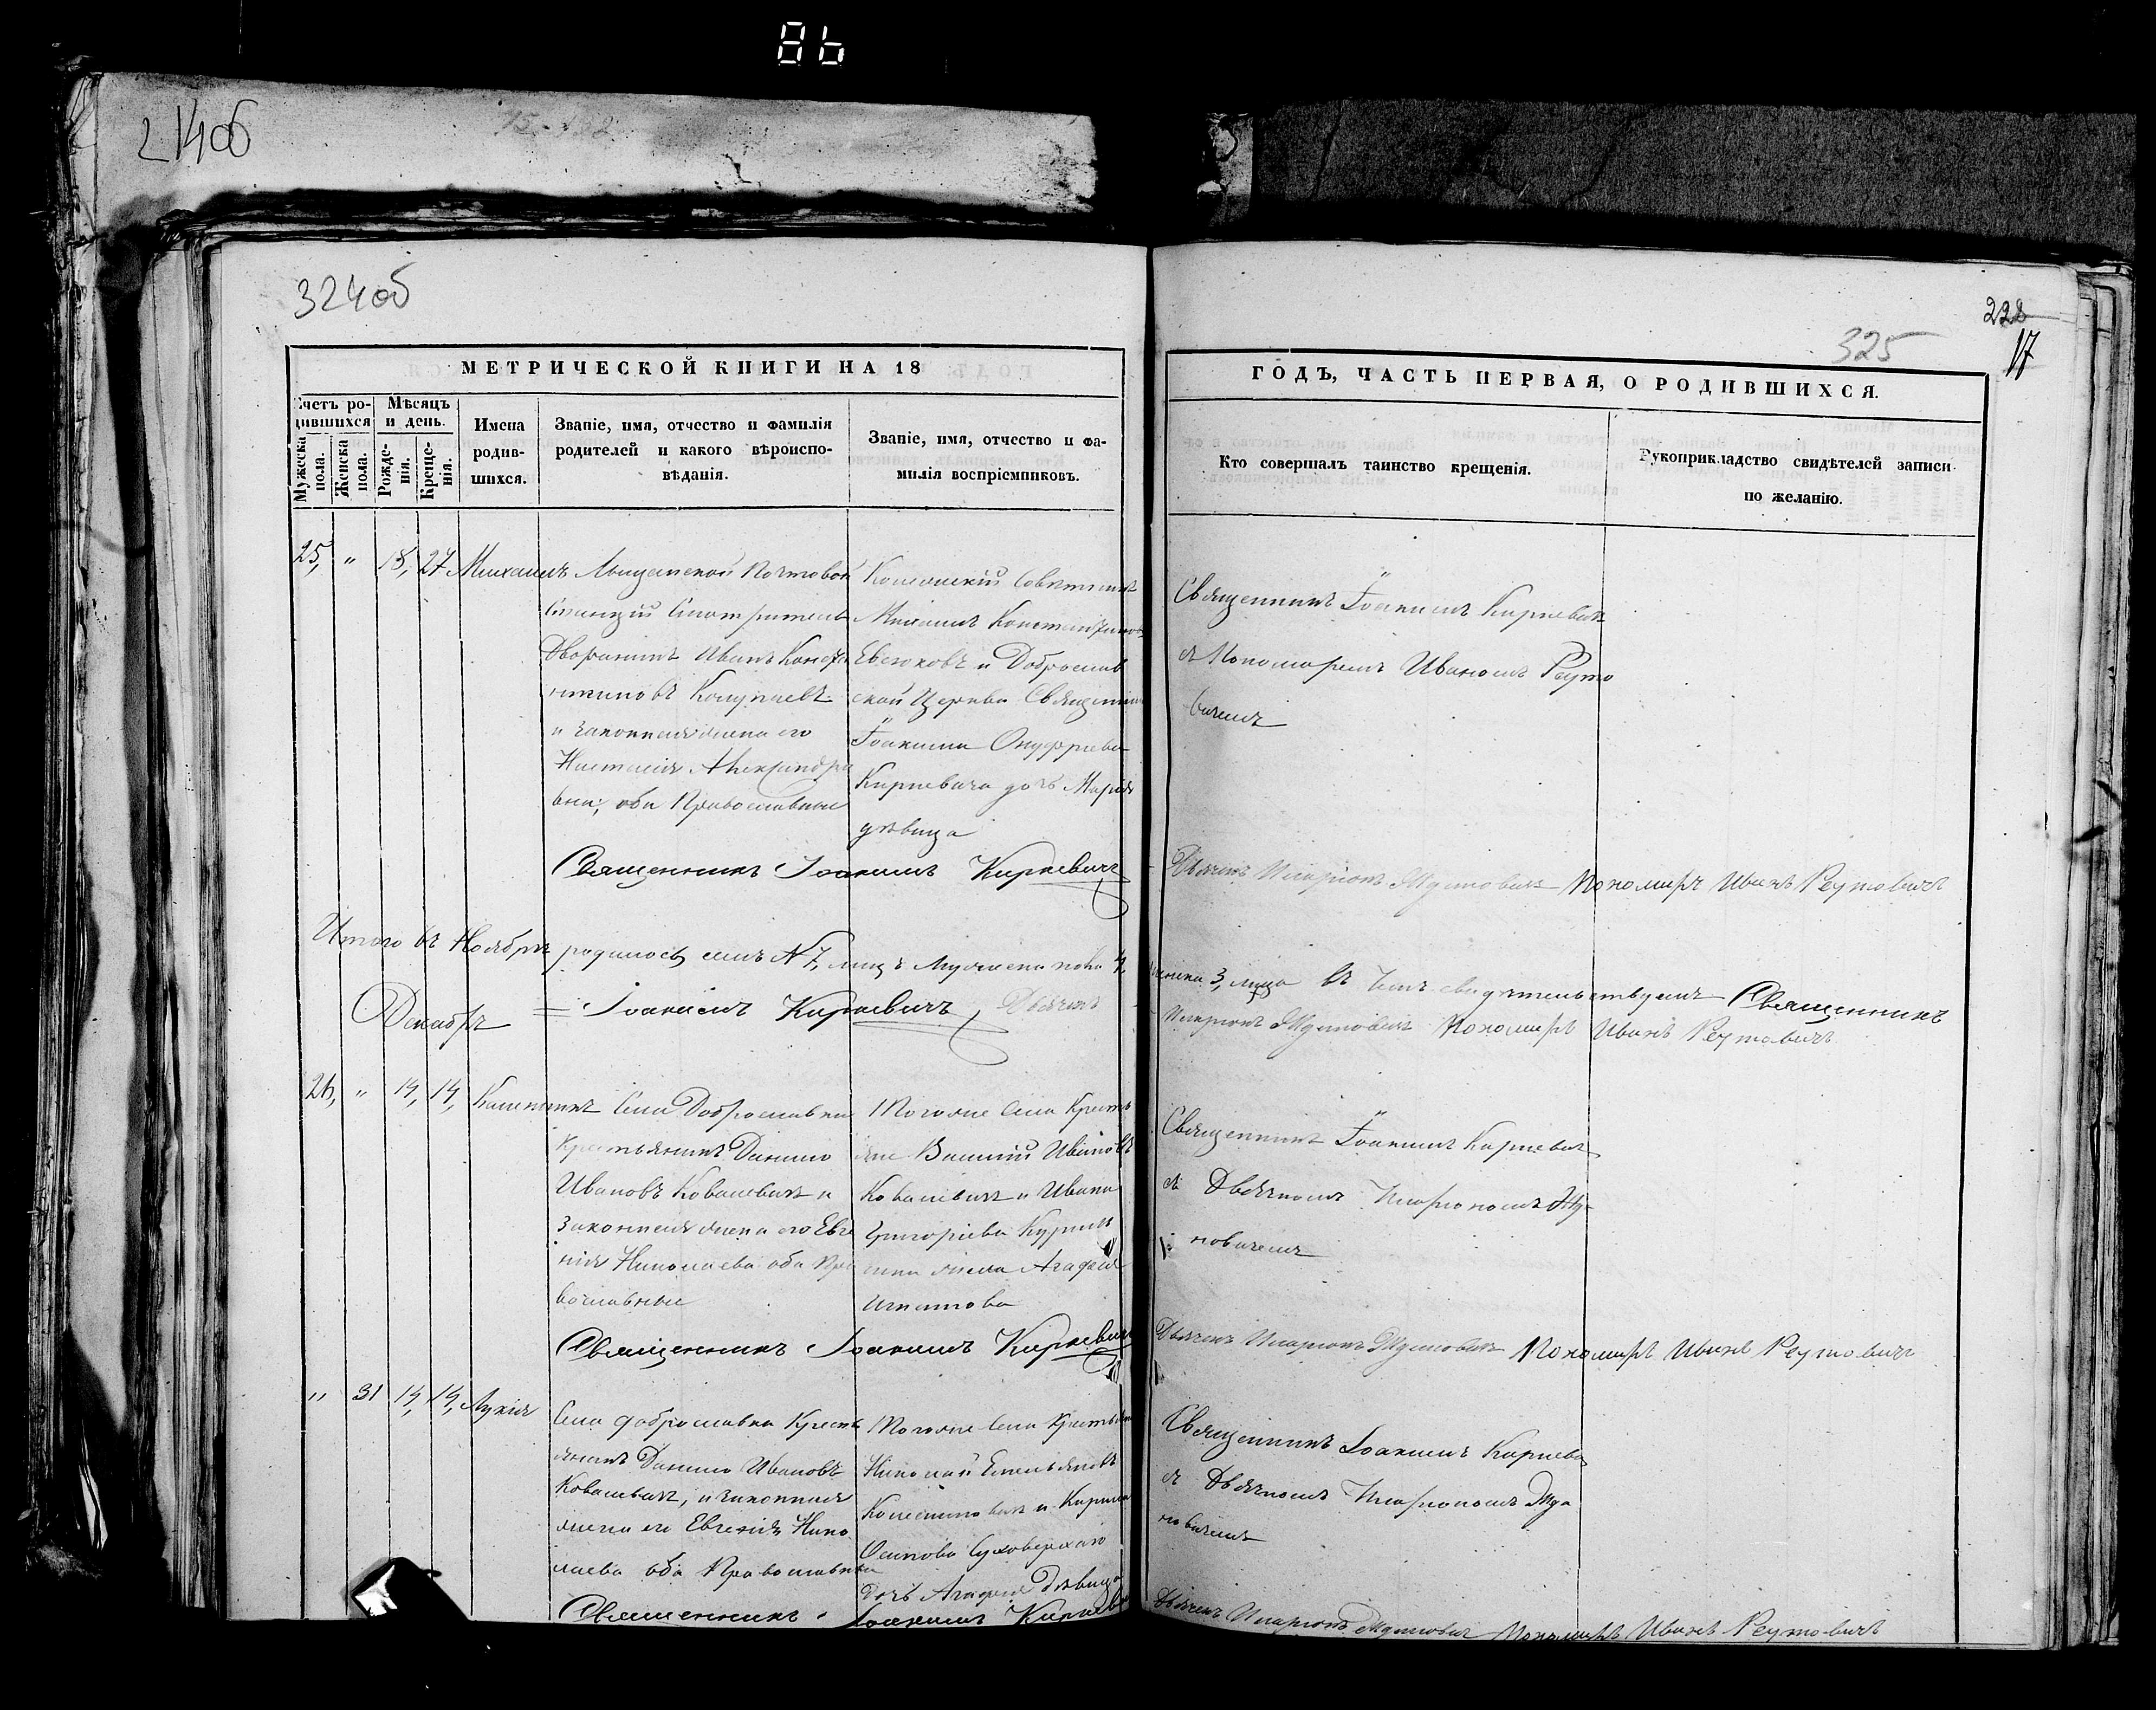 86
214об
324об
МЕТРИЧЕСКОЙ КНИГИ НА 18
Счетъ ро-
дившихся
Мѣсяцъ
и день.
Мужеска
пола.
Женска
пола.
Рожде-
нія.
Креще-
нія.
Имена
родив-
шихся.
Званіе, имя, отчество и фамилія
родителей и какого вѣроиспо-
вѣданія.
Званіе, имя, отчество и фа-
милія воспріемниковъ.
25, " 18, 27 Михаилъ
Почтовой
Станціи Смотритель
Дворянинъ Иванъ Конста
нтиновъ
и законная жена его
Настасія Александро
вна, оба Православные
Колежскій Совѣтникъ
Михаилъ Константинов
Евсюковъ и Доброслав
ской Церкви Священника
Іоакима Онуфріева
Кирневича дочь Марія
дѣвица
Священникъ Іоакимъ Кирневичъ
Итого въ Ноябрѣ родилось N 7, лицъ Мужеска пола 4,
Декабрь = Іоакимъ Кирневичъ, Дьячекъ
26, " 14, 14, Калиникъ
Села Доброславки
Крестьянинъ Данило
Ивановъ Ковалевичъ и
Законная жена его Евге
нія Николаева оба Пра
вославные
Тогоже Села Кресть
яне Василій Ивановъ
Ковалевичъ и Ивана
Григоріева
жена Агафія
Игнатова
Священникъ Іоакимъ Кирневичъ
" 31 14, 14, Лукія
Села Доброславки Кресть
янинъ Данило Ивановъ
Ковалевичъ, и законная
жена его Евгенія Нико
лаева оба Православные
Тогоже Села Крестьяни
Николай Емельяновъ
и Кирила
Осипова Суховерхаго
дочь Агафія Дѣвица
Священникъ Іоакимъ Кирневи
228
325
17
ГОДЪ, ЧАСТЬ ПЕРВАЯ, О РОДИВШИХСЯ.
Кто совершалъ таинство крещенія.
Рукоприкладство свидѣтелей записи
по желанію.
Священникъ Іоакимъ Кирневичъ
съ Пономаремъ Иваномъ Реуто
вичемъ
Дьячекъ Иларіонъ Пономарь Иванъ Реутовичъ
женска 3, лица въ чемъ свидѣтельствуемъ Священникъ
Иларіонъ Пономарь Иванъ Реутовичъ
Священникъ Іоакимъ Кирневичъ
съ Дьячкомъ Иларіономъ
новичемъ
Дьячекъ Иларіонъ Пономарь Иванъ Реутовичъ
Священникъ Іоакимъ Кирнева
съ Дьячкомъ Иларіономъ
новичемъ
Дьячекъ Иларіонъ Пономарь Иванъ Реутовичъ